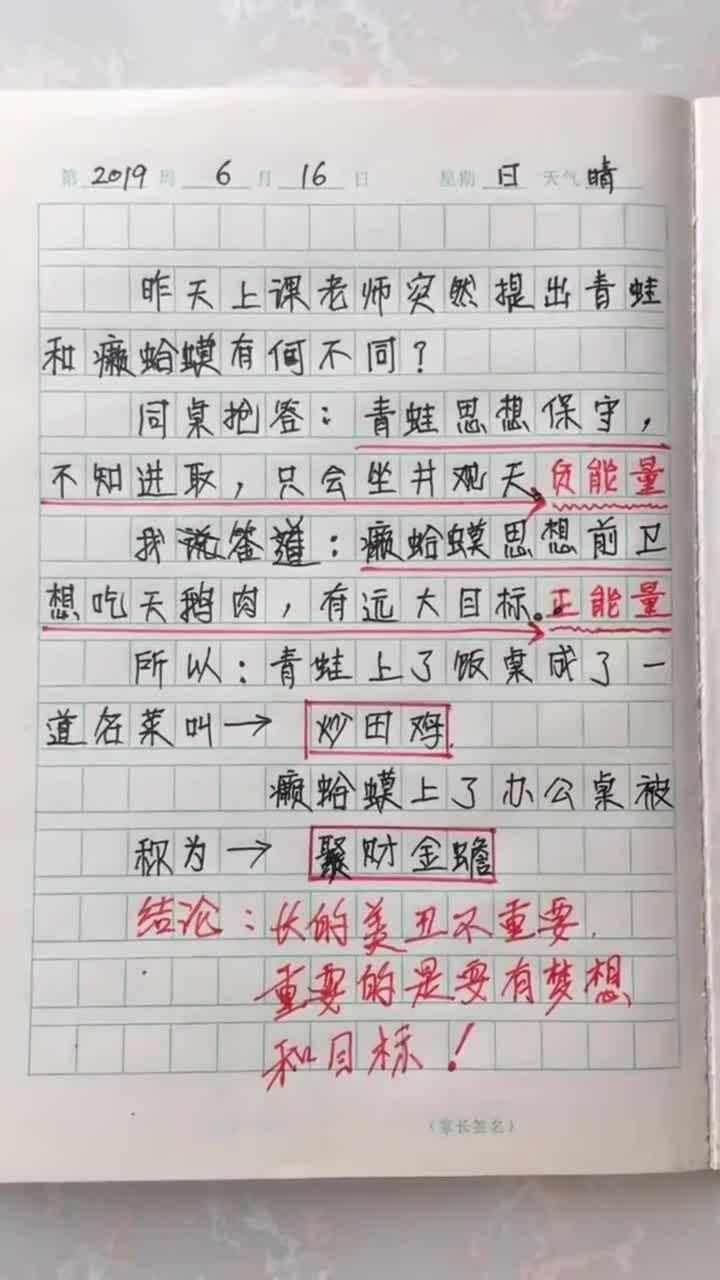 第 2019 周 6 月 16 日 星期 日 天气 晴
昨天上课老师突然提出青蛙
和癞蛤蟆有何不同?
同桌抢答:青蛙思想保守,
不知进取,只会坐井观天。负能量
我说答道:癞蛤蟆思想前卫
想吃天鹅肉,有远大目标。正能量
所以:青蛙上了饭桌成了一
道名菜叫→ 炒田鸡.
癞蛤蟆上了办公桌被
称为→ 聚财金蟾
结论:长的美丑不重要.
重要的是要有梦想
和目标!
(家长签名)